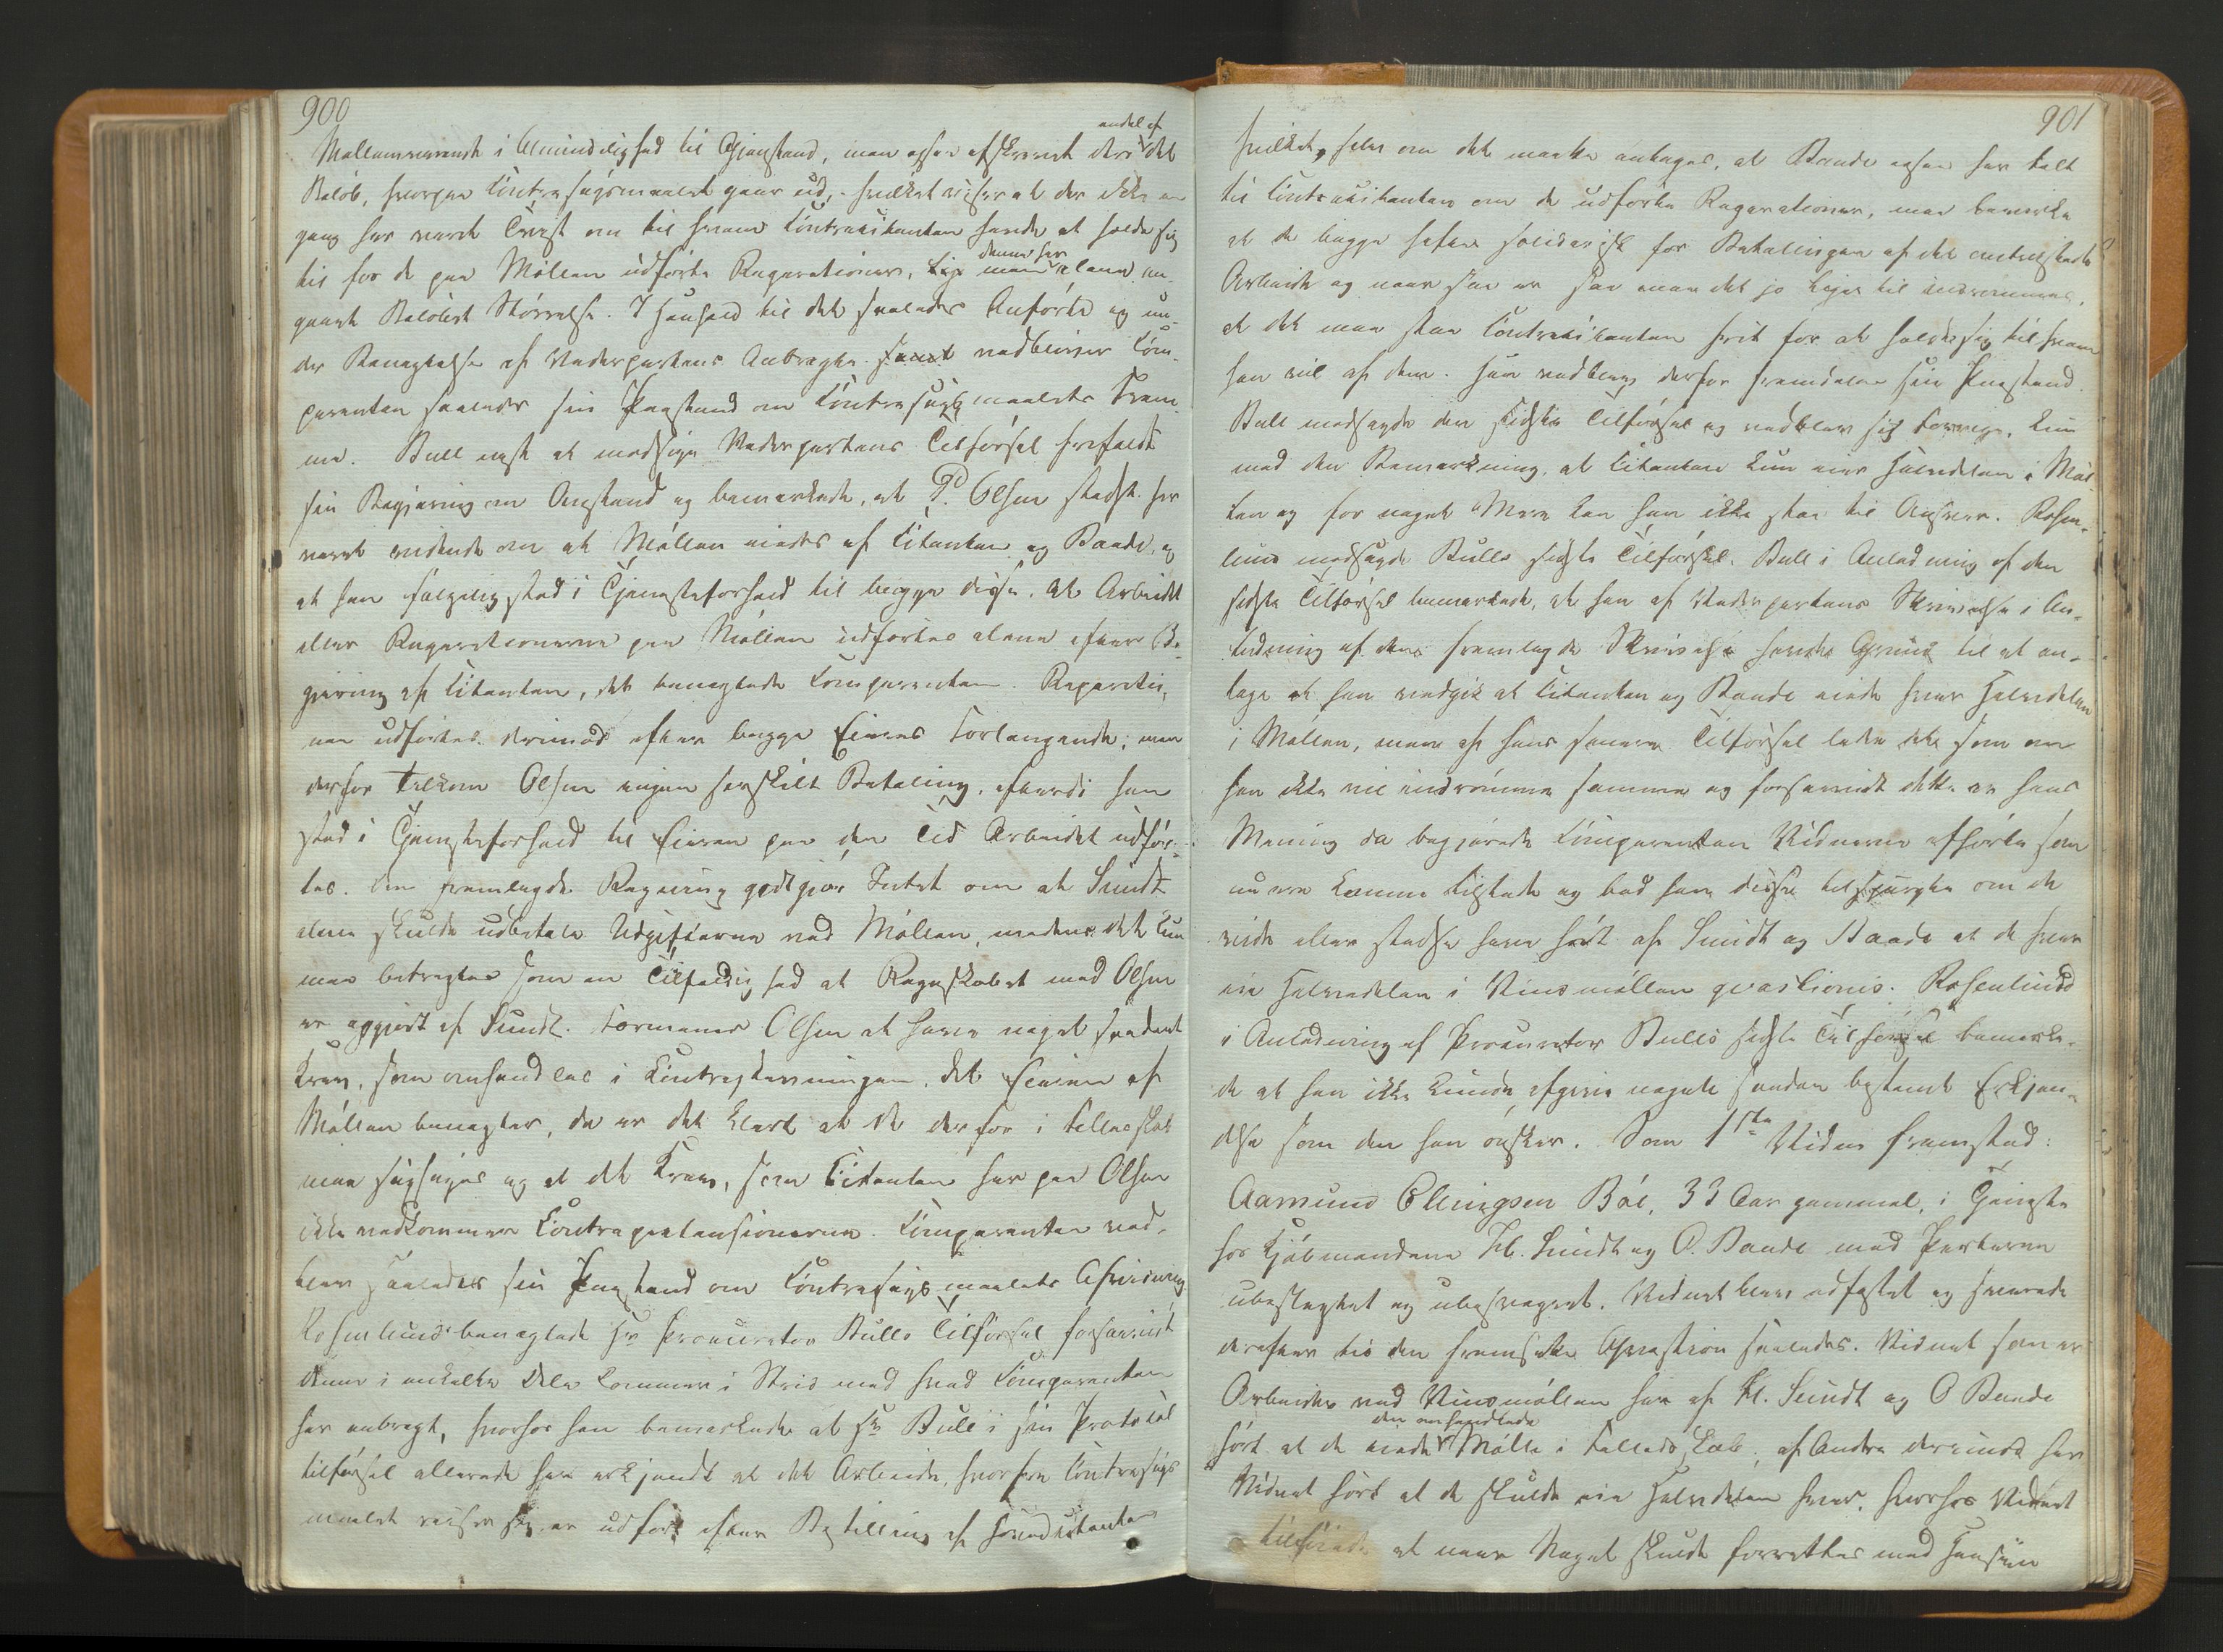 900
Mellemværende i Almindelighed til Gjenstand, men ogsaa afskrevet deri andel af det
Beløb, hvorpaa Contrasøgsmaalet gaar ud, - hvilket viser at der ikke en
gang har været Tvist om til hvem Contracitanten havde at holde sig
til for de paa Møllen udførte Reparationer, men denne har alene an-
gaaet Beløbets Størrelse. I Henhold til det saaledes Anførte og un-
der Benægtelse af Vederpartens Anbragte vedbliver Com-
parenten saaledes sin Paastand om Contrasøgsmaalets Frem-
me. Bull næst at modsige Vederpartens Tilførsel frafaldt
sin Begjæring om Anstand og bemærkede, at P. Olsen stedse har
været vidende om at Møllen eiedes af Citanten og Baade, og
at han følgelig stod i Tjenesteforhold til begge disse. At Arbeidet
eller Reparationerne paa Møllen udførtes alene efter Be-
gjæring af Citanten, det benægtede Comparenten. Reparatio-
nen udførtes derimod efter begge Eieres Forlangende; men
derfor tilkom Olsen ingen særskilt Betaling, efterdi han
stod i Tjenesteforhold til Eieren paa den Tid Arbeidet udfør-
tes. Den fremlagde Regning godtgjør Intet om at Sundt
alene skulde udbetale Udgifterne ved Møllen, medens det kun
maa betragtes som en Tilfældighed at Regnskabet med Olsen
er opgjort af Sundt. Formener Olsen at have noget saadant
Krav, som omhandles i Contrastævningen, det Eierne af
Møllen benægter, da er det klart at de derfor i Fællesskab
maa søgsøges og at det Krav, som Citanten har paa Olsen
ikke vedkommer Contraprætensionerne. Comparenten ved-
blev saaledes sin Paastand om Contrasøgsmaalets Afviisning
Rosenlund benægtede Hr Procurator Bulls Tilførsel forsaavidt
denne i enkelte Dele kommer i Strid med hvad Comparenten
har anbragt, hvorhos han bemærkede at Hr Bull i sin Protocol
tilførsel allerede har erkjendt at det Arbeide, hvorfra Contrasøgs
maalet reiser sig er udført efter Bestilling af Hovedcitanten
901
hvilket, selv om det maatte antages, at Baade ogsaa har talt
til Contracitanten om de udførte Reparationer, maa bevirke
at de begge hefter solidarisk for Betalingen af det omtvistede
Arbeide og naar saa er saa maa det jo ligge til indrømmes,
at det maa staa Contracitanten frit for at holde sig til hvem
han vil af dem. Han vedblev derfor fremdeles sin Paastand.
Bull modsagde den sidste Tilførsel og vedblev sig Forrige, kun
med den Bemærkning, at Citanten kun eier Halvdelen i Møl-
len og for noget Mere kan han ikke staa til Ansvar. Rosen-
lund modsagde Bulls sidste Tilførsel. Bull i Anledning af den
sidste Tilførsel bemærkede, at han af Vederpartens Skrivelse i An-
ledning af den fremlagde Skrivelse havde Grund til at an-
tage at han vedgik at Citanten og Baade eiede hver Halvdelen
i Møllen, men af hans senere Tilførsel lader det som om
han ikke vil indrømme samme og forsaavidt dette er hans
Mening da begjærede Comparenten Vidnerne afhørte som
nu ere komne tilstede og bad han disse tilspurgte om de
vide eller stedse have hørt af Sundt og Baade at de hver
eie Halvedelen i Vindmøllen qvæstionis. Rosenlund
i Anledning af Procurator Bulls sidste Tilførsel bemærke-
de at han ikke kunde afgive nogen saadan bestemt Erkjen-
delse som den han ønsker. Som 1ste Vidne fremstod:
Aamund Ellingsen Bøe, 33 Aar gammel, i Tjeneste
hos Kjøbmændene Fr. Sundt og O. Baade med Parterne
ubeslægtet og ubesvogret. Vidnet blev edfæstet og svarede
derefter til den fremsatte Qvæstion saaledes. Vidnet som er
Arbeider ved Vindmøllen har af Fr. Sundt og O Baade
hørt at de eiede den omhandlede Mølle i Fælledsskab; af Andre derimod har
Vidnet hørt at de skulde eie Halvdelen hver, hvorhos Vidnet
tilføiede at naar Noget skulde forrettes med Hensyn